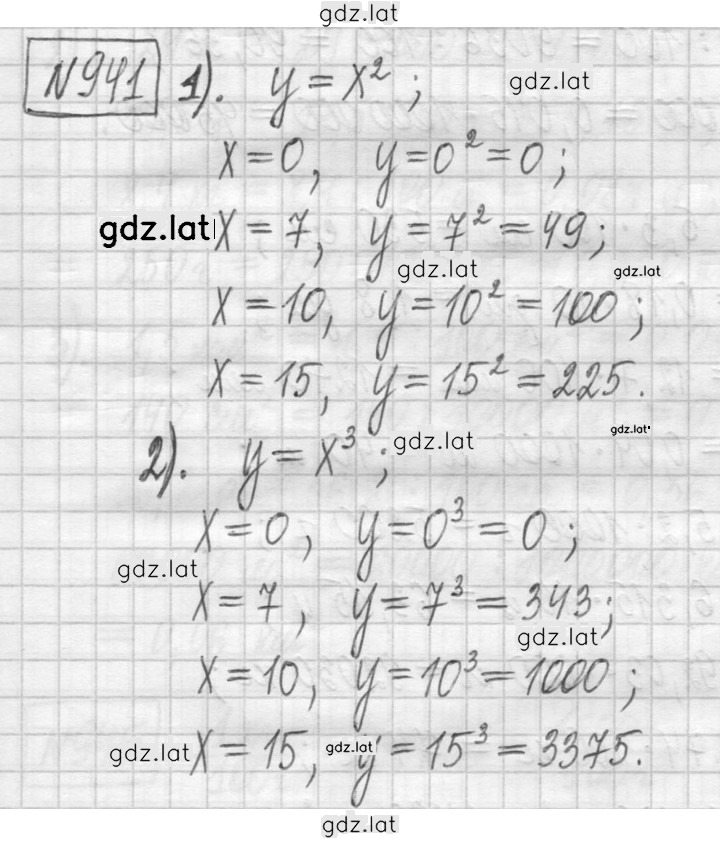 gdz.lat
№941 1). y = x² ; gdz.lat
x = 0, y = 0² = 0 ;
gdz.lat x = 7, y = 7² = 49 ;
gdz.lat gdz.lat
x = 10, y = 10² = 100 ;
x = 15, y = 15² = 225 .
gdz.lat
2). y = x³ ; gdz.lat
x = 0, y = 0³ = 0 ;
gdz.lat
x = 7, y = 7³ = 343 ;
gdz.lat
x = 10, y = 10³ = 1000 ;
gdz.lat x = 15, gdz.lat y = 15³ = 3375 .
gdz.lat